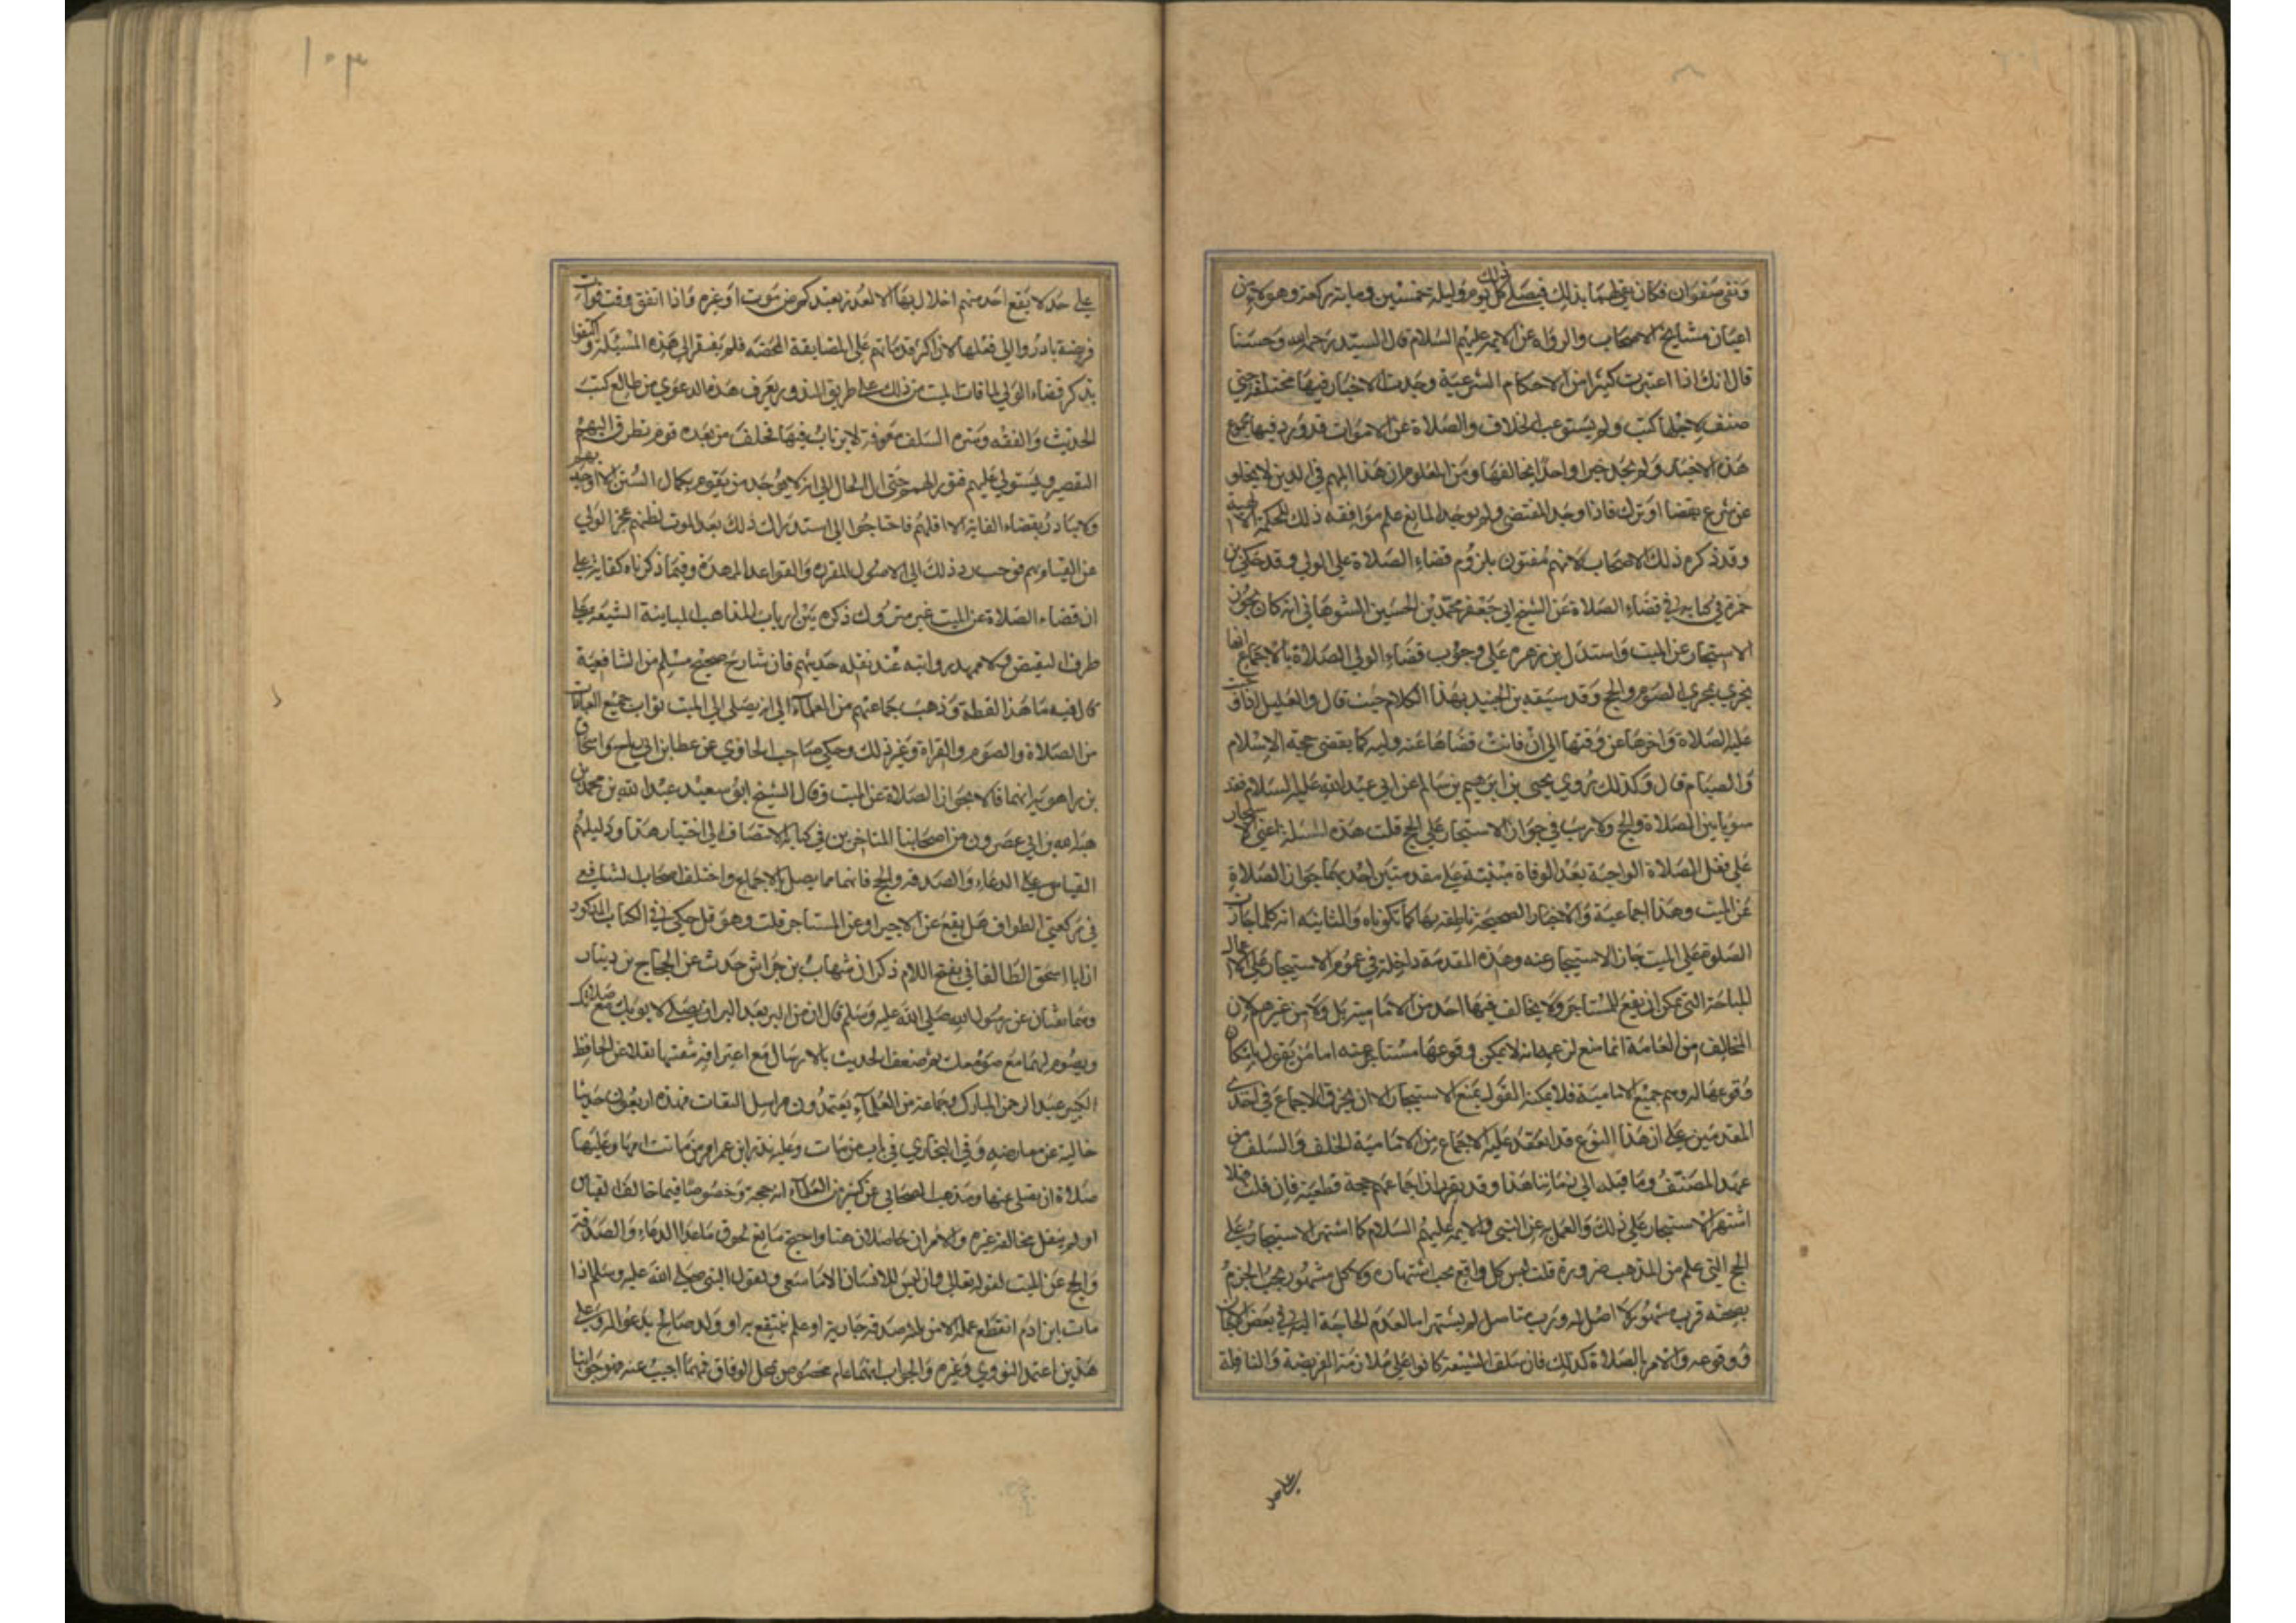 وبقي صفوان فكان يفي لهما بذلك فيصلي كل يوم وليلة خمسين ومائة ركعة وهولاء من
اعيان مشايخ الاصحاب والرواة عن الايمة عليهم السلام قال السيد رحمه الله وحسنا
قال انك اذا اعتبرت كثيرا من الاحكام الشرعية وجدت الاخبار فيها مختلفة حتى
صنف لاجلها كتب ولم يستوعب الخلاف والصلاة عن الاموات قد ورد فيها مجموع
هذه الاخبار ولم نجد خبرا واحدا يخالفها ومن المعلوم ان هذا المهم في الدين لا يخلو
عن شرع بقضا او ترك فاذا وجد المقتضي ولم يوجد المانع علم موافقه ذلك للحكمة الالهية
وقد ذكره ذلك الاصحاب لانهم مفتون بلزوم قضاء الصلاة على الولي وقد حكى بن
حمزة في كتابه في قضاء الصلاة عن الشيخ ابي جعفر محمد بن الحسين الشوهاني انه كان يجوز
الاستيجار عن الميت واستدل بن زهره على وجوب قضاء الولي الصلاة بالاجماع انها
تجري مجرى الصوم والحج وقد سبقه بن الجنيد بهذا الكلام حيث قال والعليل اذا وجبت
عليه الصلاة واخرها عن وقتها الى ان فاتت قضاها عنه وليه كما يقضي حجة الاسلام
والصيام قال وكذلك روى يحيى بن ابرهيم بن سالم عن ابي عبد الله عليه السلام فقد
سويا بين الصلاة والحج ولا ريب في جواز الاستيجار على الحج قلت هذه المسلة اعني الاستيجار
على فعل الصلاة الواجبة بعد الوفاة مبنية على مقدمتين احديهما جواز الصلاة
عن الميت وهذا اجماعية والاخبار الصحيحة ناطقه بها كما تلوناه والثانيه انه كلما جازت
الصلوة على الميت جاز الاستيجار عنه وهذه المقدمة داخلة في عموم الاستيجار على الاعمال
المباحة التي يمكن ان يقع للمستاجر ولا يخالف فيها احد من الامامية بل ولا من غيرهم لان
المخالف من العامة انما منع لزعمه انه لا يمكن وقوعها مستاجر عنه اما من يقول بامكان
وقوعها له وهم جميع الامامية فلا يمكنه القول بمنع الاستيجار الا ان يخرق الاجماع في احدى
المقدمتين على ان هذا النوع قد انعقد عليه الاجماع من الامامية الخلف والسلف من
عهد المصنف وما قبله الى زماننا هذا وقد تقرر ان اجماعهم حجة قطعية فان قلت فهلا
اشتهر الاستيجار على ذلك والعمل به عن النبي والايمه عليهم السلام كما اشتهر الاستيجار على
الحج التي علم من المذهب ضرورة قلت ليس كل واقع يجب اشتهاره ولا كل مشهور يجب الجزم
بصحته فرب مشهور لا اصل له ورب متاصل لم يشتهر اما لعدم الحاجة اليه في بعض الاحيان
ووقوعه والامر بالصلاة كذلك فان سلف الشيعة كانوا على ملازمة الفريضة والنافلة
على حد لا يقع احد منهم اخلال بها الا لعذر بعيد كمرض موت او غيره واذا اتفق وقت فوات
فريضة بادروا الى فعلها لان اكثر قدمائهم على المضايقة المحضه فلم يفتقروا الى هذه المسيلة واكتفوا
بذكر قضاء الولي لما فات الميت من ذلك على طريق الندور ويعرف هذه الدعوى من طالع كتب
الحديث والفقه وسيرة السلف معرفة لا يرتاب فيها فخلف من بعده قوم تطرق اليهم
التقصير ويستولي عليهم فتور الهمم حتى ال الحال الى انه لا يوجد من يقوم بكمال السنن الا اوحديهم
ولا يبادر بقضاء الفايته الا اقلهم فاحتاجوا الى استدراك ذلك بعد الموت لظنهم عجز الولي
عن القيام به فوجب رد ذلك الى الاصول المقرره والقواعد الممهدة وفيما ذكرناه كفاية على
ان قضاء الصلاة عن الميت غير متروك ذكره بين ارباب المذاهب المباينة الشيعه على
طرف النقيض
قال فيه ما هذا لفظه وذهب جماعتهم من العلماء الى انه يصل الى الميت ثواب جميع العبادات
من الصلاة والصوم والقراة وغير ذلك وحكى صاحب الحاوي عن عطا بن ابي رباح واسحاق
بن راهويه انهما قالا بجواز الصلاة عن الميت وقال الشيخ ابو سعيد عبد الله بن محمد بن
هبة الله بن ابي عصرون من اصحابنا المتاخرين في كتابه الانتصاف الى اختيار هذا ودليلهم
القياس على الدعاء والصدقه والحج فانهما مما يصل بالاجماع واختلف اصحاب الشافعي
في ركعتي الطواف هل يقع عن الاجير او عن المستاجر قلت وهو قد حكي في الكتاب المذكور
ان ابا اسحق الطالقاني بفتح اللام ذكر ان شهاب بن خراش حدث عن الحجاج بن دينار
عن رسول الله صلى الله عليه وسلم قال ان من البر بعد البر ان يصلي لابويك مع صلاتك
ويصوم لهما مع صومك ثم ضعف الحديث بالارسال مع اعترافه نقلا عن الحافظ
الكبير عبد الرحمن المبارك وجماعة من العلماء يعتمدون مراسيل الثقات
خالية عن معارضه وفي البخاري في باب من مات وعليه نذر ان ابن عمر امر من ماتت امها وعليها
صلاة ان يصلي عنها ومذهب الصحابي عن كثير من العلماء انه حجة وخصوصا فيما خالف القياس
او لم ينقل مخالفة غيره والامران حاصلان هنا واحتج مانع لحوق ما عدا الدعاء والصدقة
والحج عن الميت لقوله تعالى وان ليس للانسان الا ما سعى ولقول النبي صلى الله عليه وسلم اذا
مات ابن ادم انقطع عمله الا من ثلاث صدقة جارية او علم ينتفع به او ولد صالح يدعو له وعلى
هذين اعتمد النووي وغيره والجواب انهما عام مخصوص بمحل الوفاق فهما اجيب عنه فهو جوابنا
١٠٣